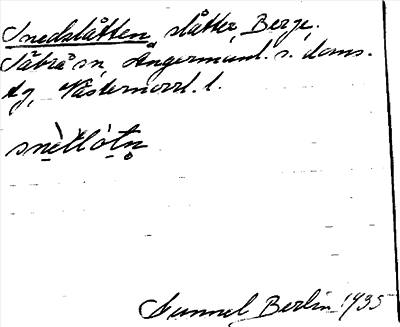 Snedslåtten slåtter, Berge,
Säbrå sn, Ångermanl. s. doms.
dg, Västernorrl. l.
snè̱tlótn̥
Gunnel Berlin 1935